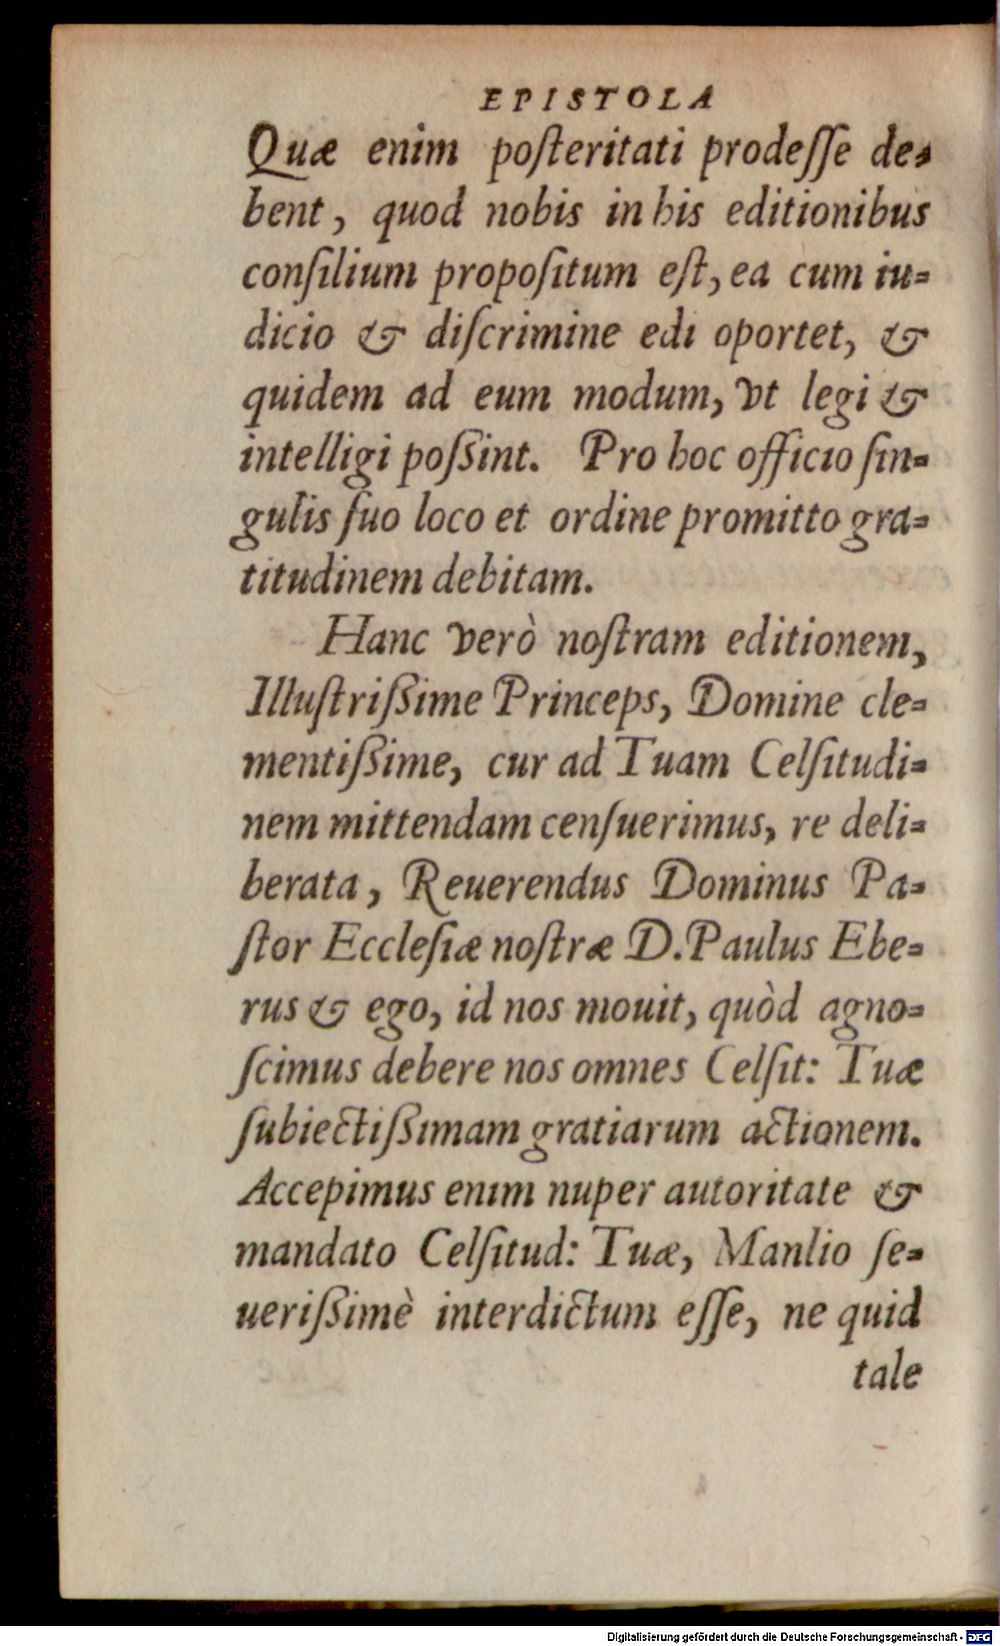 EPISTOLA
Quæ enim poſteritati prodeſſe de-
bent, quod nobis in his editionibus
conſilium propoſitum eſt, ea cum iu-
dicio & diſcrimine edi oportet, &
quidem ad eum modum, vt legi &
intelligi poßint. Pro hoc officio ſin-
gulis ſuo loco et ordine promitto gra-
titudinem debitam.
Hanc verò noſtram editionem,
Illuſtrißime Princeps, Domine cle-
mentißime, cur ad Tuam Celſitudi-
nem mittendam cenſuerimus, re deli-
berata, Reuerendus Dominus Pa-
ſtor Eccleſiæ noſtræ D. Paulus Ebe-
rus & ego, id nos mouit, quòd agno-
ſcimus debere nos omnes Celſit: Tuæ
ſubiectißimam gratiarum actionem.
Accepimus enim nuper autoritate &
mandato Celſitud: Tuæ, Manlio ſe-
uerißimè interdictum eſſe, ne quid
tale
Digitalisierung gefördert durch die Deutsche Forschungsgemeinschaft - DFG